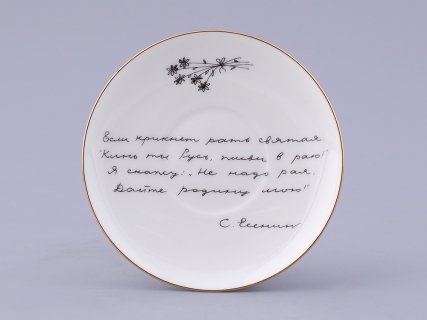 Если крикнет рать святая:
"Кинь ты Русь, живи в раю!"
Я скажу: „Не надо рая.
Дайте родину мою!"
С. Есенин